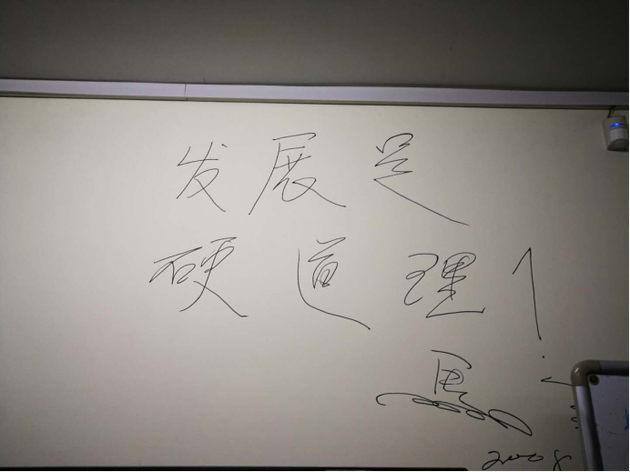 发展是
硬道理！
2008